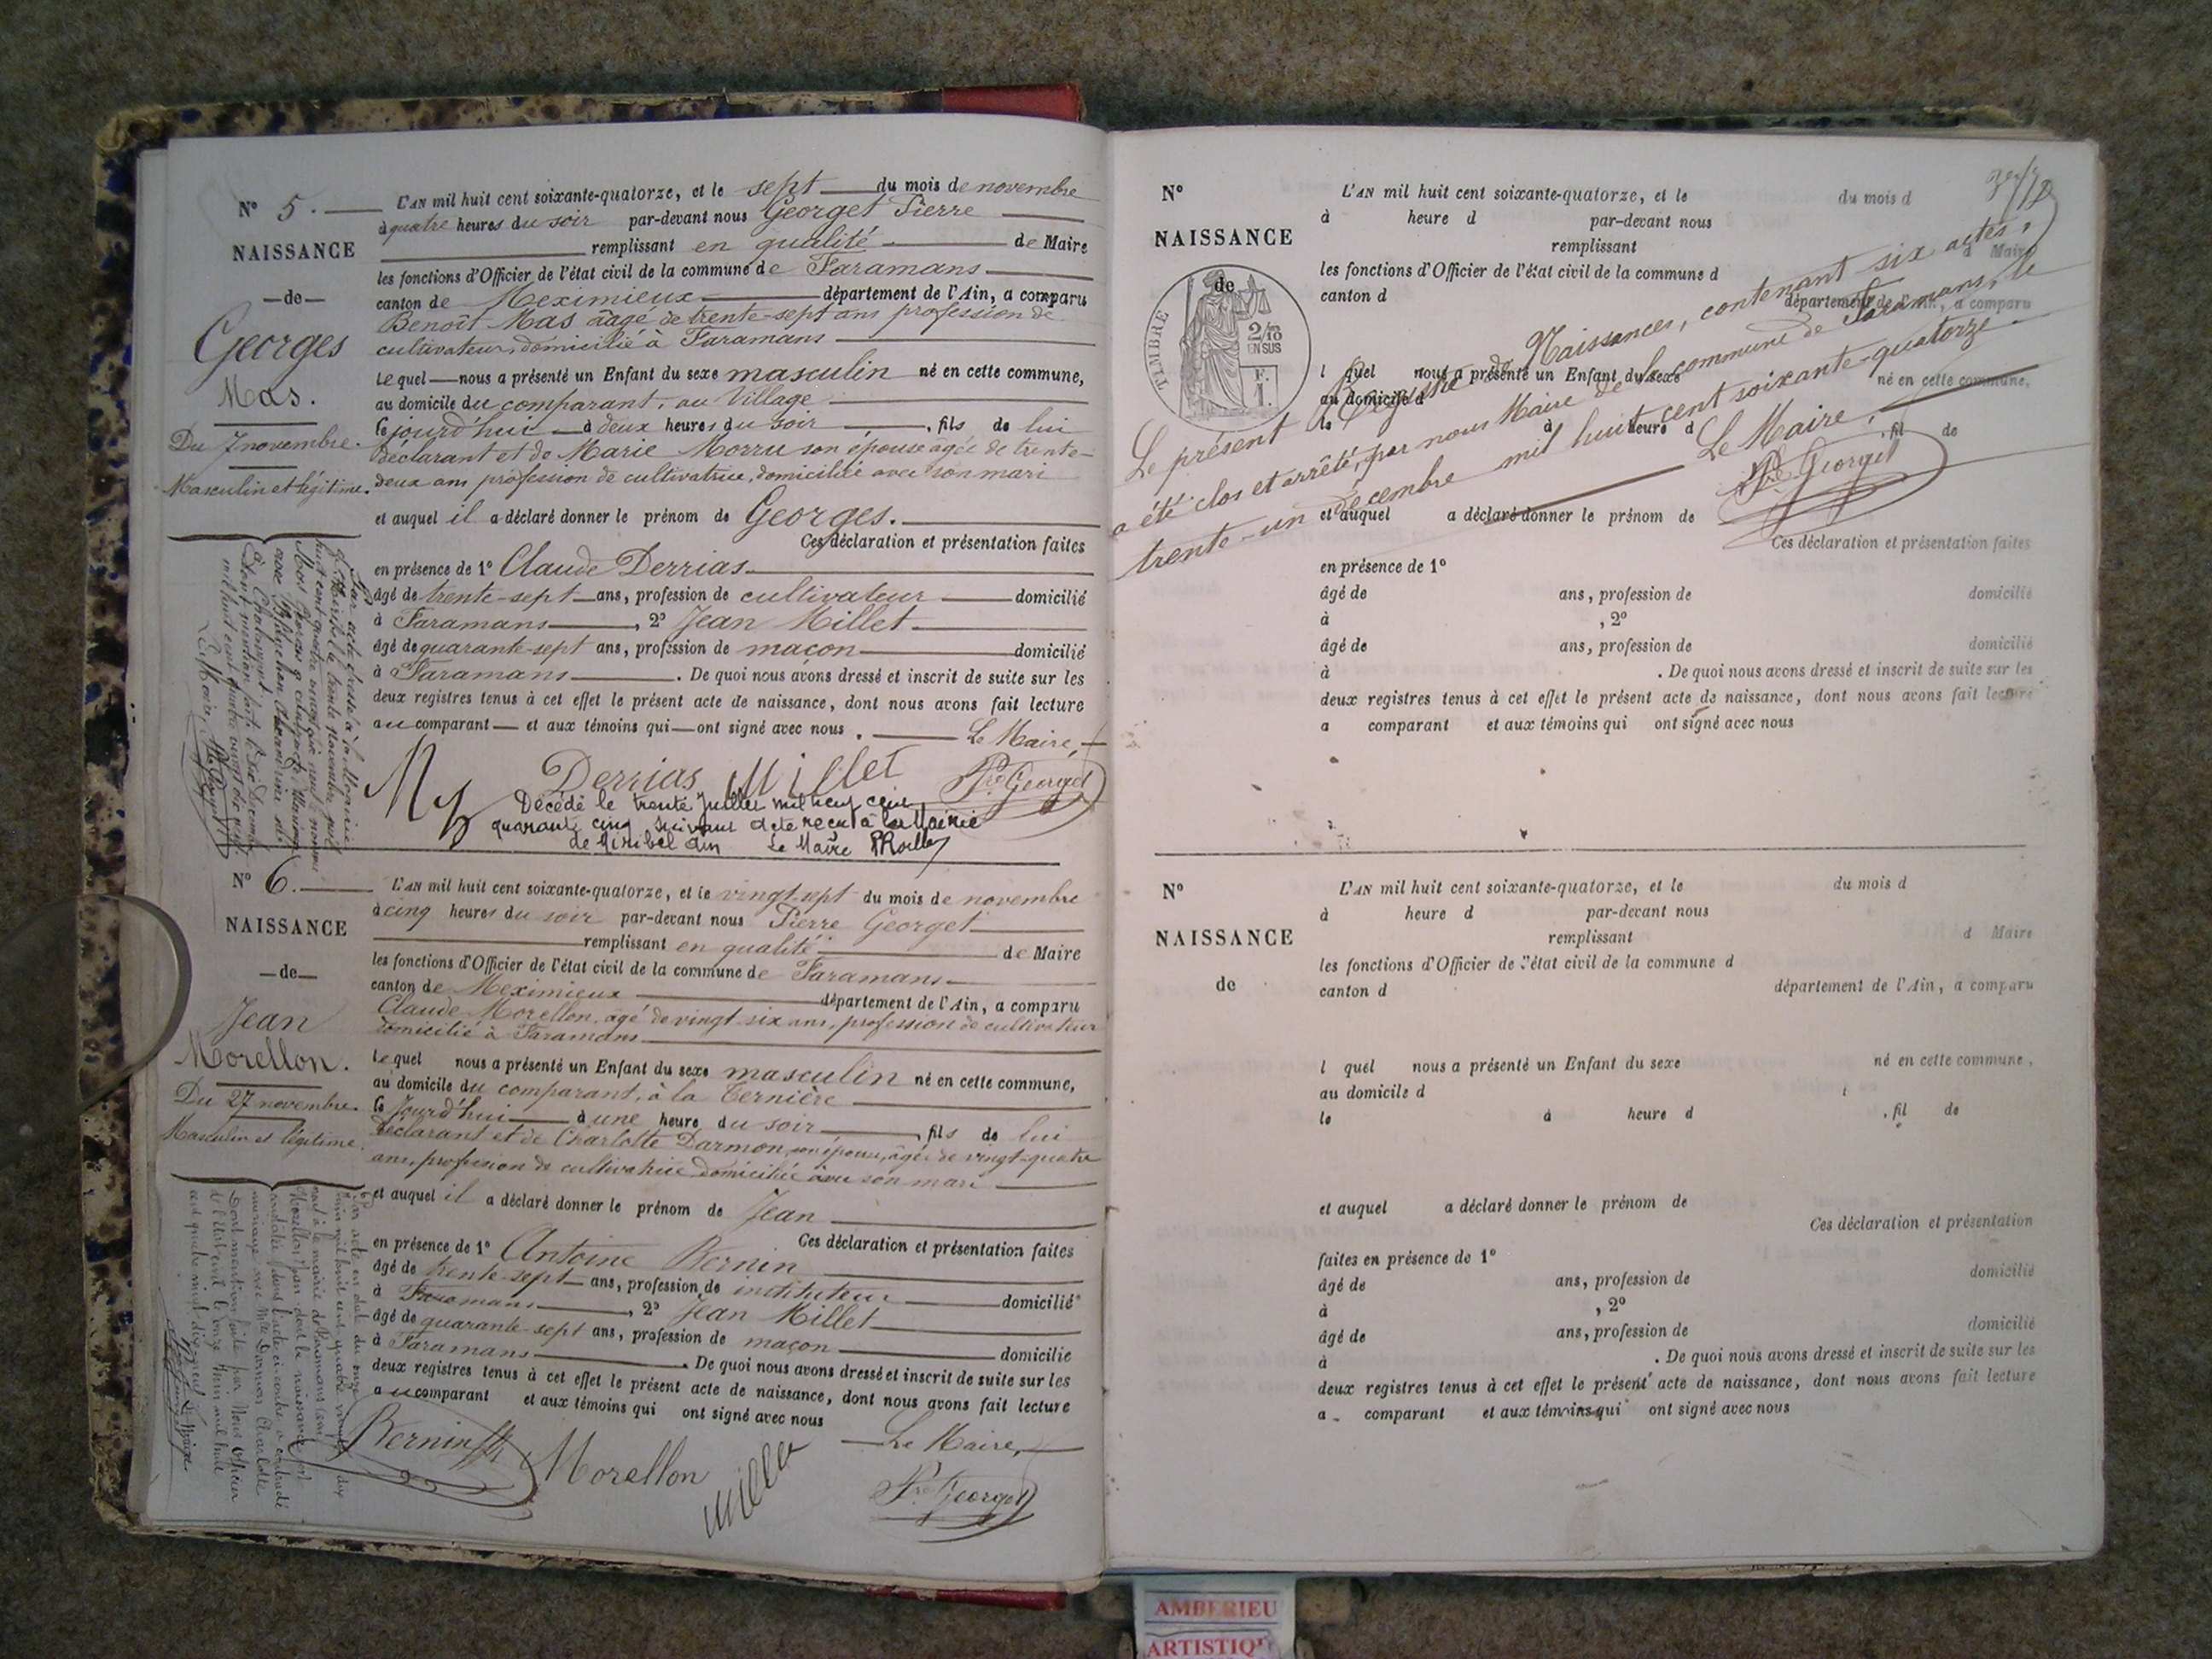 N° 5.
NAISSANCE
—de—
Georges
Mas.
Du 7 novembre.
Masculin et légitime.
L'AN mil huit cent soixante-quatorze, et le sept du mois de novembre
à quatre heures du soir par-devant nous Georget Pierre
remplissant en qualité de Maire
les fonctions d'Officier de l'état civil de la commune de Faramans
canton de Meximieux département de l'Ain, a comparu
Benoît Mas âagé de trente-sept ans profession de
cultivateur, domicilié à Faramans
Lequel nous a présenté un Enfant du sexe masculin né en cette commune,
au domicile du comparant, au Village
le jourd'hui à deux heures du soir, fils de lui
déclarant et de Marie Morru son épouse agée de trente-
deux ans profession de cultivatrice, domiciliée avec son mari
et auquel il a déclaré donner le prénom de Georges.
Ces déclaration et présentation faites
en présence de 1° Claude Derrias
âgé de trente-sept ans, profession de cultivateur domicilié
à Faramans, 2° Jean Millet
âgé de quarante-sept ans, profession de maçon domicilié
à Faramans. De quoi nous avons dressé et inscrit de suite sur les
deux registres tenus à cet effet le présent acte de naissance, dont nous avons fait lecture
au comparant et aux témoins qui ont signé avec nous.
Le Maire,
Derrias Millet Pre Georget
Décédé le trente Juillet mil neuf cent
quarante cinq suivant acte recu à la Mairie
de Miribel Ain Le Maire
N° 6.
NAISSANCE
—de—
Jean
Morellon.
Du 27 novembre.
Masculin et légitime.
L'AN mil huit cent soixante-quatorze, et le vingt-sept du mois de novembre
à cinq heures du soir par-devant nous Pierre Georget
remplissant en qualité de Maire
les fonctions d'Officier de l'état civil de la commune de Faramans
canton de Meximieux département de l'Ain, a comparu
Claude Morellon, agé de vingt-six ans, profession de cultivateur
domicilié à Faramans
Lequel nous a présenté un Enfant du sexe masculin né en cette commune,
au domicile du comparant, à la Ternière
le jourd'hui à une heure du soir, fils de lui
déclarant et de Charlotte Darmon, son épouse, agée de vingt-quatre
ans, profession de cultivatrice domiciliée avec son mari
et auquel il a déclaré donner le prénom de Jean
Ces déclaration et présentation faites
en présence de 1° Antoine Bernin
âgé de trente-sept ans, profession de instituteur domicilié
à Faramans, 2° Jean Millet
âgé de quarante-sept ans, profession de maçon domicilié
à Faramans. De quoi nous avons dressé et inscrit de suite sur les
deux registres tenus à cet effet le présent acte de naissance, dont nous avons fait lecture
au comparant et aux témoins qui ont signé avec nous
Le Maire,
Bernin Morellon Millet Pre Georget
N°
NAISSANCE
de
TIMBRE
2/10
EN SUS
F.
1.
L'AN mil huit cent soixante-quatorze, et le du mois d
à heure d par-devant nous
remplissant d Maire
les fonctions d'Officier de l'état civil de la commune d
canton d département de l'Ain, a comparu
l quel nous a présenté un Enfant du sexe né en cette commune,
au domicile d
le à heure d, fil de
et auquel a déclaré donner le prénom de
Ces déclaration et présentation faites
en présence de 1°
âgé de ans, profession de domicilié
à, 2°
âgé de ans, profession de domicilié
à. De quoi nous avons dressé et inscrit de suite sur les
deux registres tenus à cet effet le présent acte de naissance, dont nous avons fait lecture
a comparant et aux témoins qui ont signé avec nous
Le présent Registre de Naissances, contenant six actes,
a été clos et arrêté, par nous Maire de la commune de Faramans, le
trente-un décembre mil huit cent soixante-quatorze
Le Maire,
Pre Georget
N°
NAISSANCE
de
L'AN mil huit cent soixante-quatorze, et le du mois d
à heure d par-devant nous
remplissant d Maire
les fonctions d'Officier de l'état civil de la commune d
canton d département de l'Ain, a comparu
l quel nous a présenté un Enfant du sexe né en cette commune,
au domicile d
le à heure d, fil de
et auquel a déclaré donner le prénom de
Ces déclaration et présentation
faites en présence de 1°
âgé de ans, profession de domicilié
à, 2°
âgé de ans, profession de domicilié
à. De quoi nous avons dressé et inscrit de suite sur les
deux registres tenus à cet effet le présent acte de naissance, dont nous avons fait lecture
a comparant et aux témoins qui ont signé avec nous
AMBERIEU
ARTISTIQ